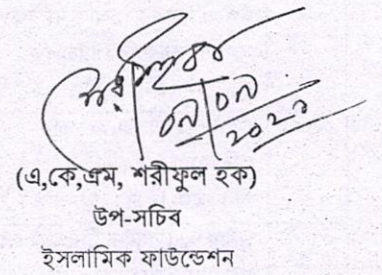 ০৯/০৯
২০২১
(এ,কে,এম, শরীফুল হক)
উপ-সচিব
ইসলামিক ফাউন্ডেশন